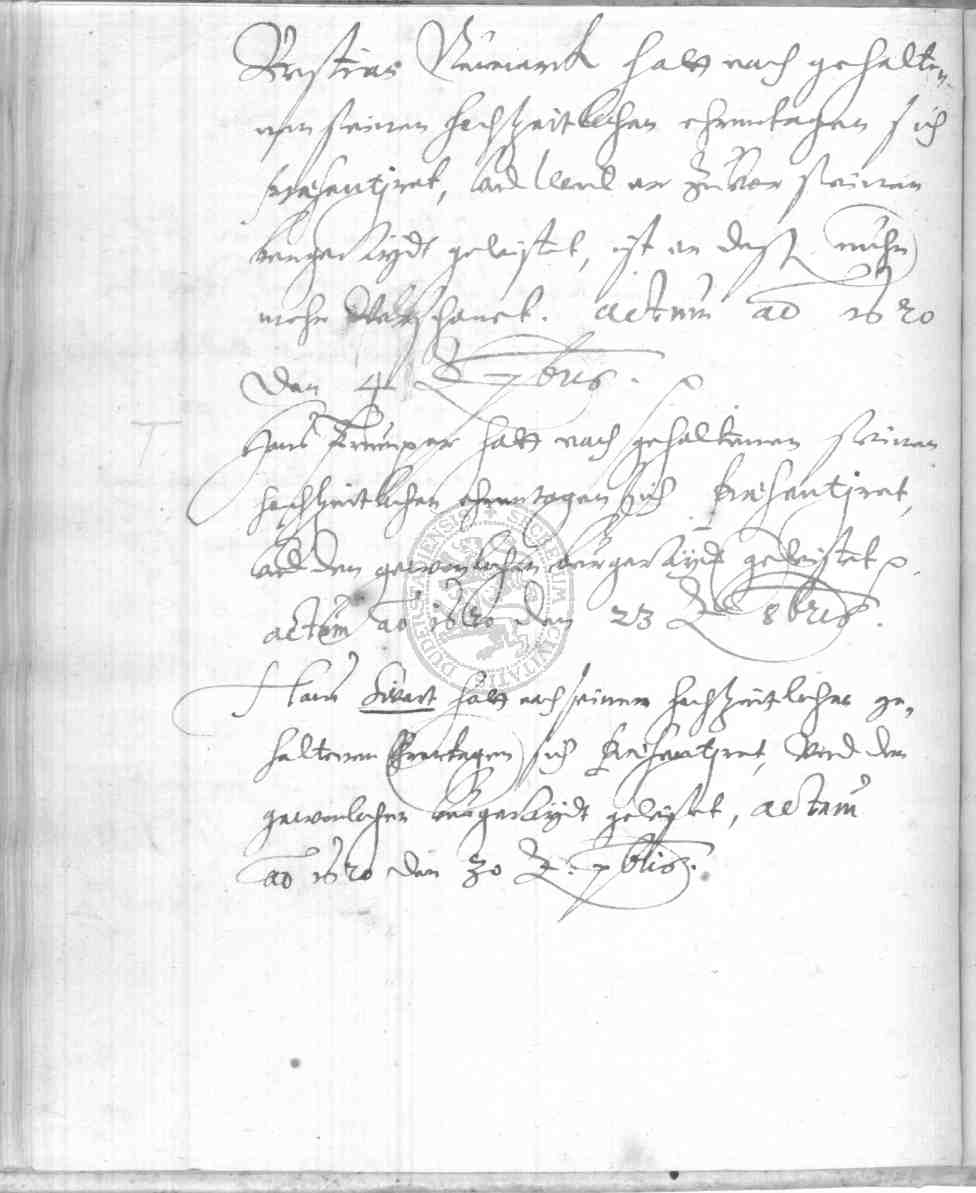 Neimarck hatt nach gehalten,
nen seinen hochzeitlichen ehrentagen sich
præsentiret, vnd weil er zuvor seinen
burger Eydt geleistet, ist er daß
mehr actum ao 1620
Den 4 7bris.
Hans hatt nach gehaltenen seinen
hochzeitlichen ehrentagen sich præsentiret,
vnd den gewonlichen burger Eydt geleistet
actum ao 1620 den 23 8bris.
Hans Swart hatt nach seinen hochzeitlichen ge,
haltenen Ehrentagen sich præsentiret, Vnd den
gewonlichen burger Eydt geleistet, actum
ao 1620 den 30 7bris.
SECRETUM CIVITATIS DUDERSTADIENSIS